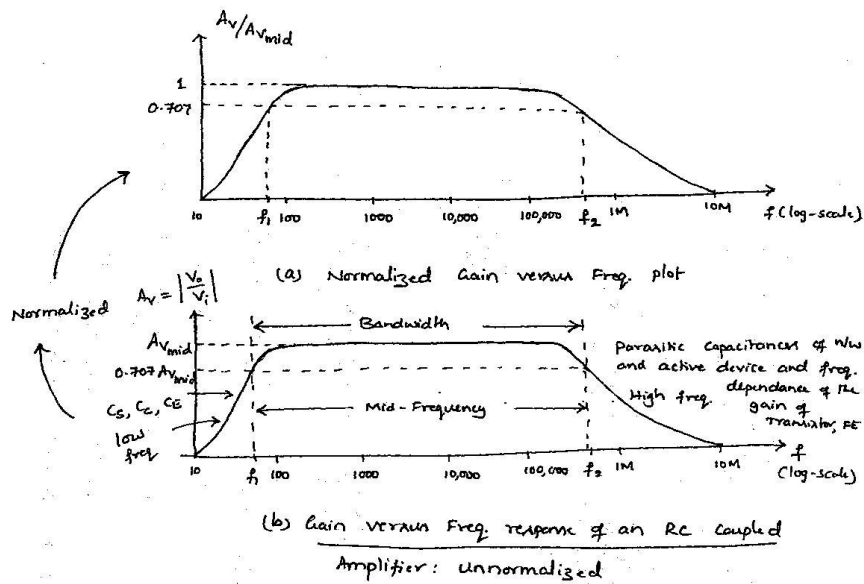 Av/Avmid
1
0.707
10 f1 100 1000 10,000 100,000 f2 1M 10M
f (log-scale)
(a) Normalized Gain versus Freq. plot
Normalized
Av = |Vo/Vi|
Bandwidth
Avmid
0.707 Avmid
Cs, Cc, CE
low
freq
Mid-Frequency
Parasitic capacitances of n/w
and active device and freq.
dependance of the
High freq.
gain of
Transistor, FE
10 f1 100 1000 10,000 100,000 f2 1M 10M
f
(log-scale)
(b) Gain versus Freq. response of an RC Coupled
Amplifier: unnormalized